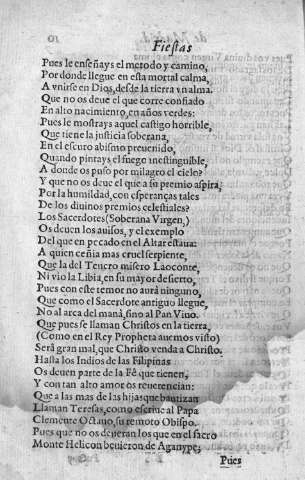 Fiestas
Pues le enseñays el metodo y camino,
Por donde llegue en esta mortal calma,
A vnirse en Dios, desde la tierra vn alma.
Que no os deue el que corre confiado
En alto nacimiento, en años verdes:
Pues le mostrays aquel castigo horrible,
Que tiene la justicia soberana,
En el escuro abismo preuenido,
Quando pintays el fuego inestinguible,
A donde os puso por milagro el cielo?
Y que no os deue el que a su premio aspira,
Por la humildad, con esperanças tales
De los diuinos premios celestiales?
Los Sacerdotes (Soberana Virgen,)
Os deuen los auisos, y el exemplo
Del que en pecado en el Altar estaua:
A quien ceñia mas cruel serpiente,
Que la del Tenero misero Laoconte,
Ni vio la Libia, en su mayor desierto,
Pues con este temor no aurà ninguno,
Que como el Sacerdote antiguo llegue,
No al arca del manà, sino al Pan Viuo.
Que pues se llaman Christos en la tierra,
(Como en el Rey Propheta auemos visto)
Serà gran mal, que Christo venda a Christo.
Hasta los Indios de las Filipinas
Os deuen parte de la Fê que tienen,
Y con tan alto amor os reuerencian:
Que a las mas de las hijas que bautizan
Llaman Teresas, como escriue al Papa
Clemente Octauo, su remoto Obispo.
Pues que no os deueran los que en el sacro
Monte Helicon beuieron de Aganype;
Pues